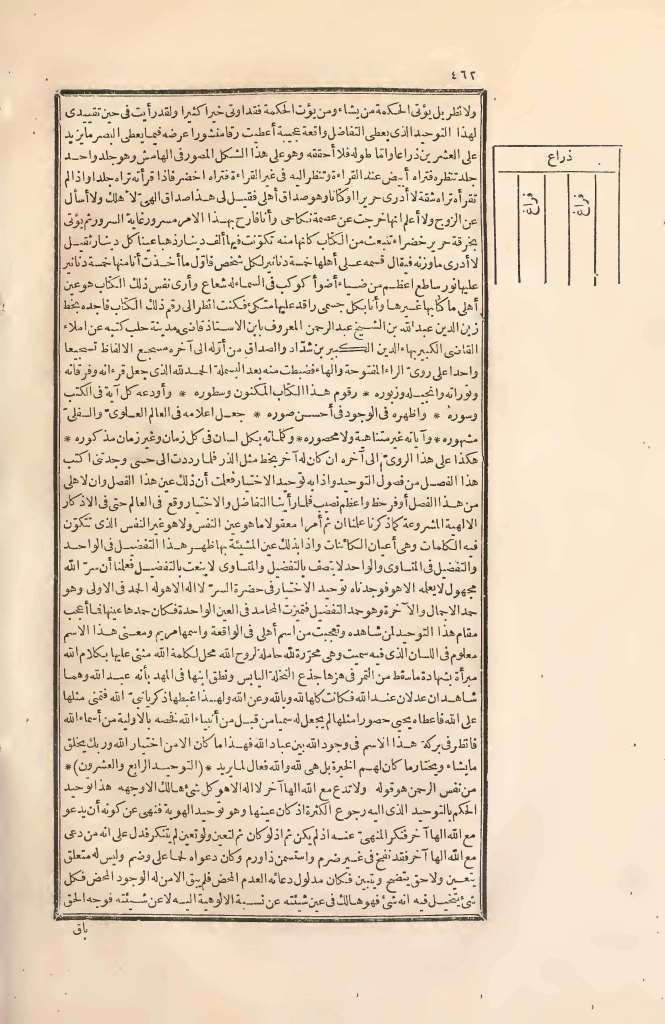 ٤٦٢
ولا نظر بل يؤتى الحكمة من يشاء ومن يؤت الحكمة فقد اوتى خيرا كثيرا ولقد رأيت فى حين تقييدى
لهذا التوحيد الذى يعطى التفاضل واقعة عجيبة أعطيت رقا منشورا عرضه فيما يعطى البصر ما يزيد
على العشرين ذراعا واما طوله فلا أحققه وهو على هذا الشكل المصور فى الهامش وهو جلد واحد
جلد تنظره فتراه أبيض عند القراءة وتنظر اليه فى غير القراءة فتراه اخضر فاذا قرأته تراه جلدا واذا لم
تقرأه تراه شقة لا أدرى حريرا او كتانا وهو صداق أهلى فقيل لى هذا صداق الهى لاهلك ولا أسأل
عن الزوج ولا أعلم انها خرجت عن عصمة نكاحى وأنا فارح بهذا الامر مسرور غاية السرور ثم يؤتى
بخرقة حرير خضراء تنبعث من الكتاب كانها منه تكونت فيها ألف دينار ذهبا عينا كل دينار ثقيل
لا أدرى ما وزنه فيقال قسمه على أهلها خمسة دنانير لكل شخص فاول ما أخذت أنا منها خمسة دنانير
عليها نور ساطع اعظم من ضياء أضوأ كوكب فى السماء له شعاع وأرى نفس ذلك الكتاب هو عين
أهلى ما كتابها غيرها وأنا بكل جسمى راقد عليها متكئ فكنت انظر الى رقم ذلك الكتاب فاجده بخط
زين الدين عبد الله بن الشيخ عبد الرحمن المعروف بابن الاستاذ قاضى مدينة حلب كتبه عن املاء
القاضى الكبير بهاء الدين الكبير بن شداد والصداق من أوله الى آخره مسجع الالفاظ تسجيعا
واحدا على روى الراء المفتوحة والهاء فضبطت منه بعد البسملة الحمد لله الذى جعل قرءانه وفرقانه
وتوراته وانجيله وزبوره * رقوم هذا الكتاب المكنون وسطوره * وأودعه كل آية فى الكتب
وسوره * واظهره فى الوجود فى أحسن صوره * جعل اعلامه فى العالم العلوى والسفلى
مشهوره * وآياته غير متناهية ولا محصوره * وكلماته بكل لسان فى كل زمان وغير زمان مذكوره *
هكذا على هذا الروى الى آخره ان كان له آخر بخط مثل الذر فلما رددت الى حسى وجدتنى اكتب
هذا الفصل من فصول التوحيد واذا به توحيد الاختيار فعلمت أن ذلك عين هذا الفصل وان لاهلى
من هذا الفصل أوفر حظ واعظم نصيب فلما رأينا التفاضل والاختيار وقع فى العالم حتى فى الاذكار
الالهية المشروعة كما ذكرنا علمنا ان ثم أمرا معقولا ما هو عين النفس ولا هو غير النفس الذى تتكون
فيه الكلمات وهى أعيان الكائنات واذا بذلك عين المشيئة بها ظهر هذا التفضيل فى الواحد
والتفضيل فى المتساوى والواحد لا يتصف بالتفضيل والمتساوى لا ينعت بالتفضيل فعلمنا أن سر الله
مجهول لا يعلمه الا هو فوجدناه توحيد الاختيار فى حضرة السر لا اله الا هو له الحمد فى الاولى وهو
حمد الاجمال والآخرة وهو حمد التفضيل فتميزت المحامد فى العين الواحدة فكان حمدها عينها فما أعجب
مقام هذا التوحيد لمن شاهده وتعجبت من اسم أهلى فى الواقعة واسمها مريم ومعنى هذا الاسم
معلوم فى اللسان الذى فيه سميت وهى محررة لله حاملة لروح الله محل لكلمة الله مثنى عليها بكلام الله
مبرأة بشهادة ما سقط من التمر فى هزها جذع النخلة اليابس ونطق ابنها فى المهد بأنه عبد الله وهما
شاهدان عدلان عند الله فكانت كلها لله وبالله وعن الله ولهذا غبطها زكريا نبى الله فتمنى مثلها
على الله فاعطاه يحيى حصورا مثلها لم يجعل له سميا من قبل من أنبياء الله فخصه بالاولية من أسماء الله
فانظر فى بركة هذا الاسم فى وجود الله بين عباد الله فهذا ما كان الا من اختيار الله وربك يخلق
ما يشاء ويختار ما كان لهم الخيرة بل هى لله والله فعال لما يريد * (التوحيد الرابع والعشرون) *
من نفس الرحمن هو قوله ولا تدع مع الله الها آخر لا اله الا هو كل شئ هالك الا وجهه هذا توحيد
الحكم بالتوحيد الذى اليه رجوع الكثرة اذ كان عينها وهو توحيد الهوية فنهى عن كونه أن يدعو
مع الله الها آخر فنكر المنهى عنه اذ لم يكن ثم اذ لو كان ثم لتعين ولو تعين لم يتنكر فدل على انه من دعى
مع الله الها آخر فقد نفخ فى غير ضرم واستسمن ذا ورم وكان دعواه لحما على وضم وليس له متعلق
يتعين ولا حق يتضح ويتبين فكان مدلول دعائه العدم المحض فلم يبق الا من له الوجود المحض فكل
شئ يتخيل فيه انه شئ فهو هالك فى عين شيئته عن نسبة الالوهية اليه لا عن شيئته فوجه الحق
باق
ذراع
فراغ
فراغ